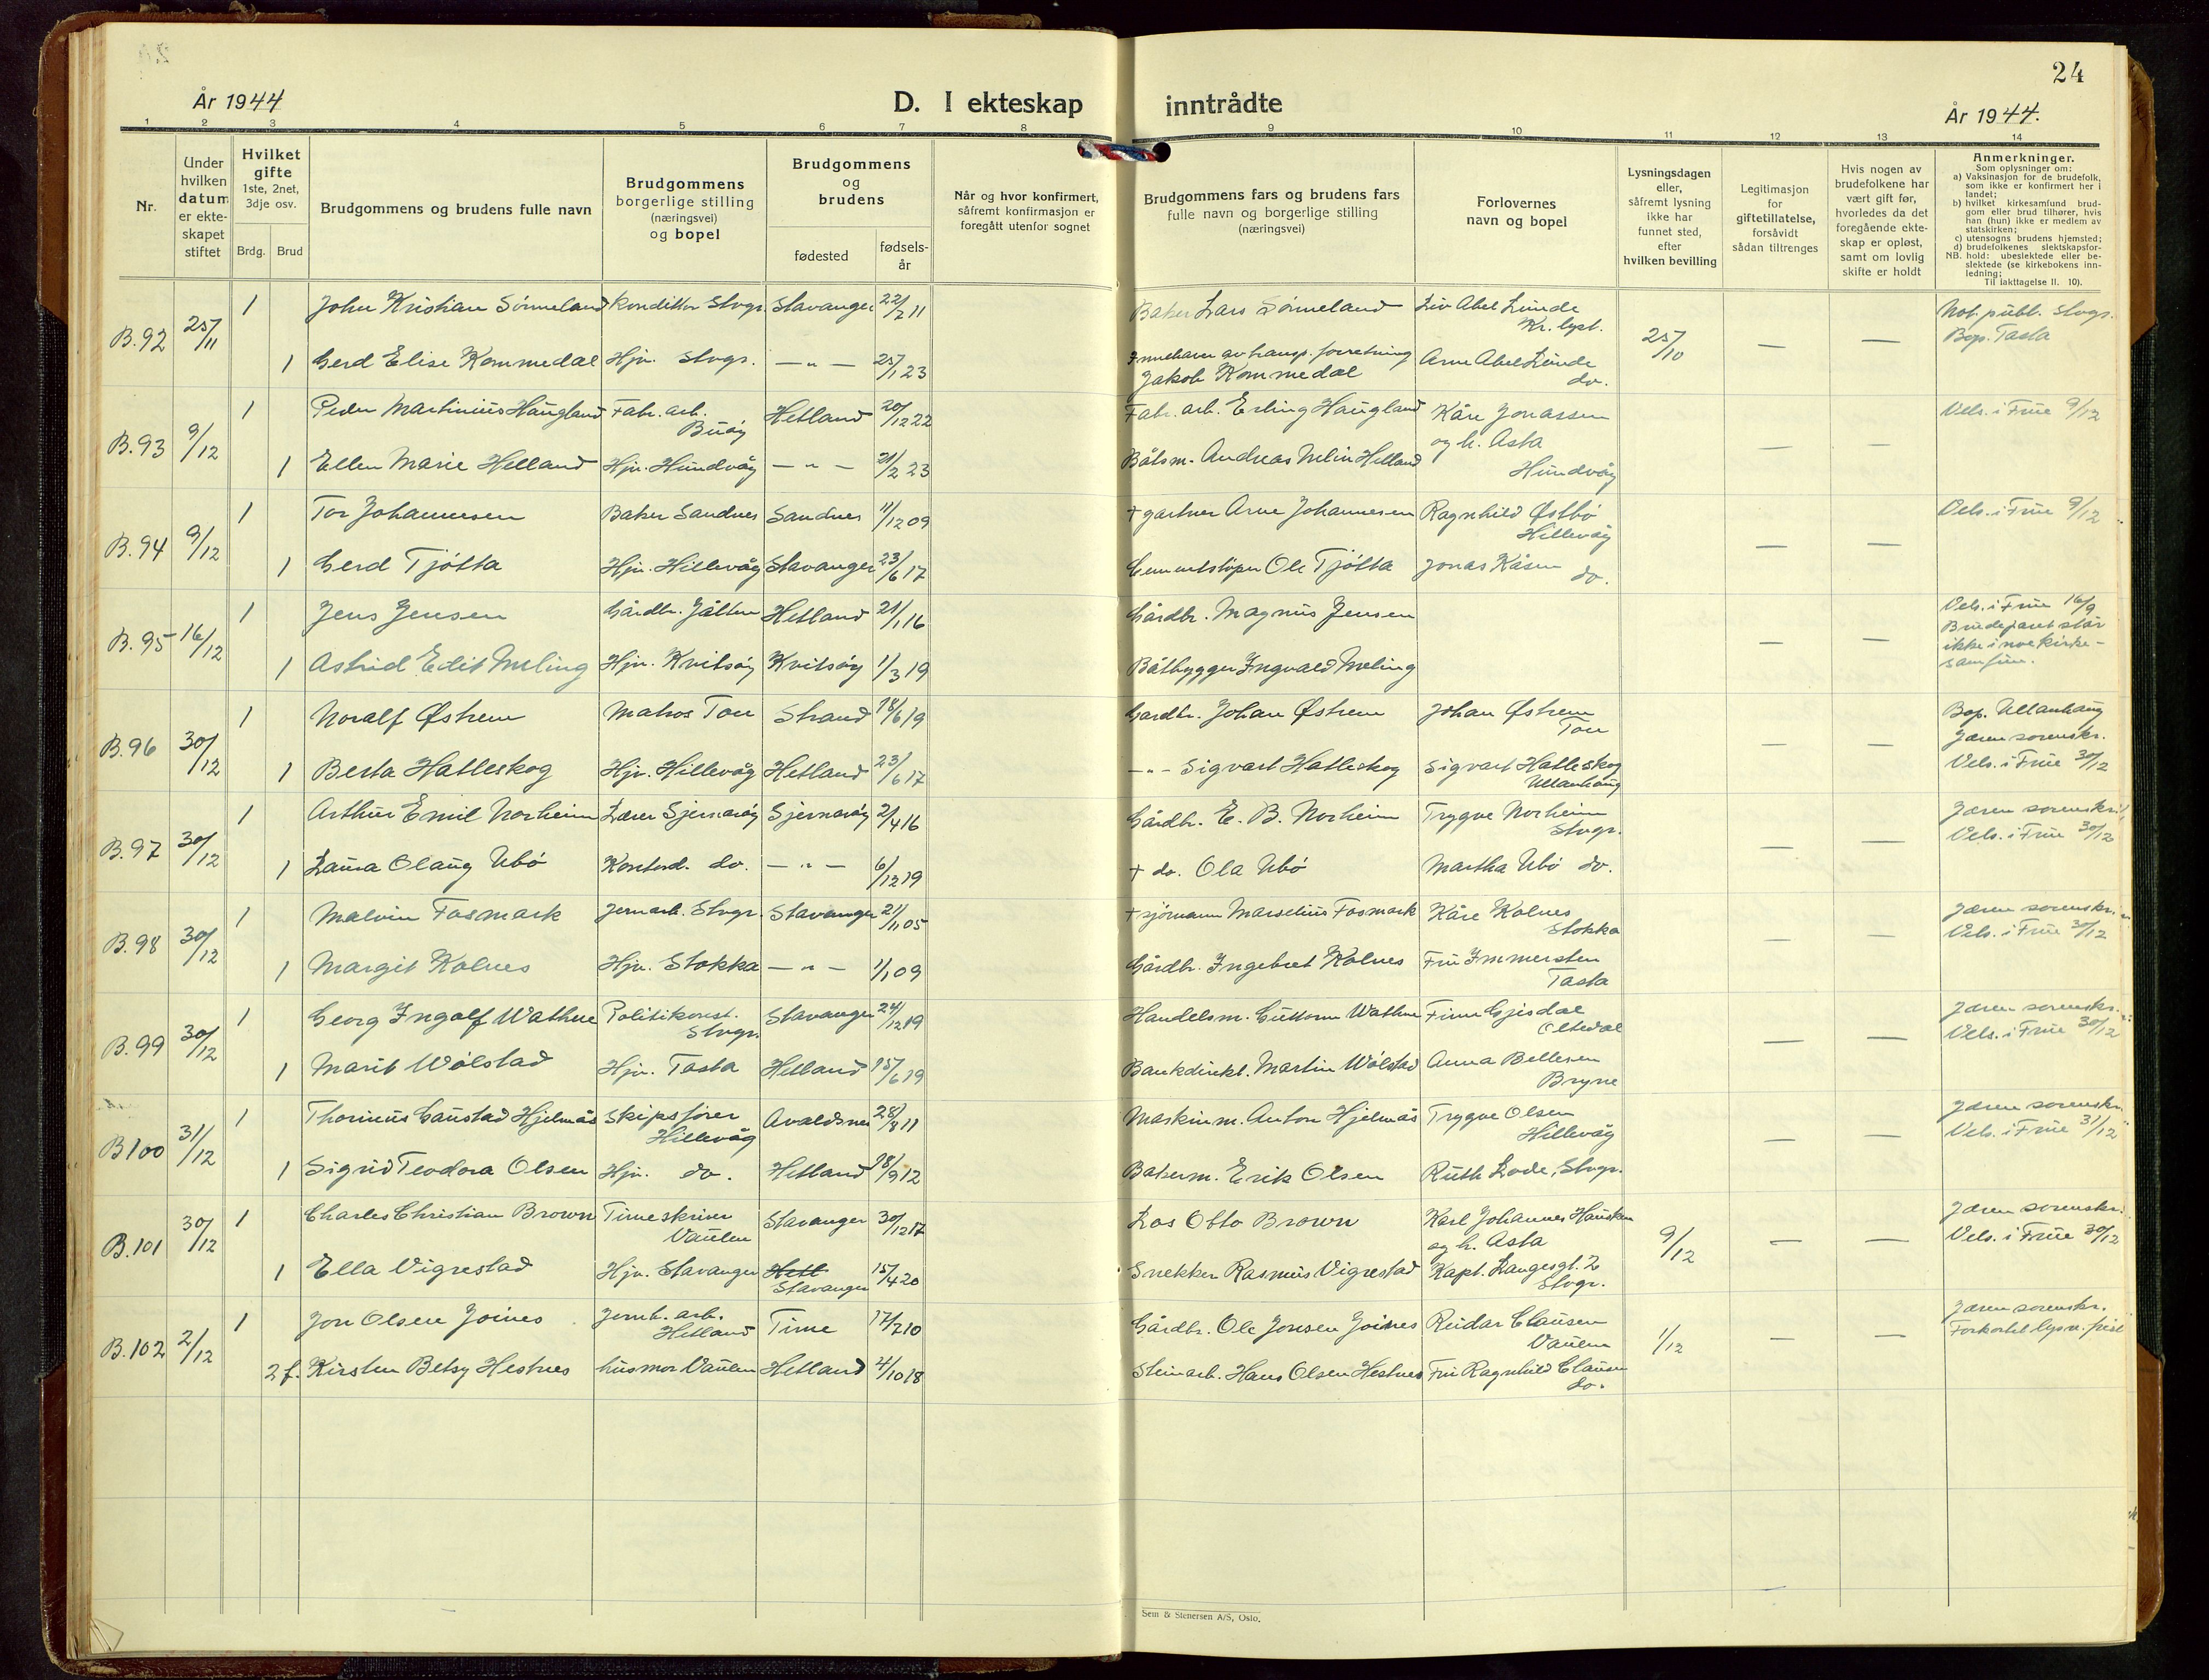 24
År 1944
D. I ekteskap inntrådte
År 1944.
1 2 3 4 5 6 7 8 9 10 11 12 13 14
Nr.
Under hvilken datum er ekteskapet stiftet
Hvilket gifte
1ste, 2net, 3dje osv.
Brdg. Brud
Brudgommens og brudens fulle navn
Brudgommens borgerlige stilling (næringsvei) og bopel
Brudgommens og brudens
fødested
fødselsår
Når og hvor konfirmert, såfremt konfirmasjon er foregått utenfor sognet
Brudgommens fars og brudens fars fulle navn og borgerlige stilling (næringsvei)
Forlovernes navn og bopel
Lysningsdagen eller, såfremt lysning ikke har funnet sted, efter hvilken bevilling
Legitimasjon for giftetillatelse, forsåvidt sådan tiltrenges
Hvis nogen av brudefolkene har vært gift før, hvorledes da det foregående ekteskap er opløst, samt om lovlig skifte er holdt
Anmerkninger.
Som oplysninger om:
a) Vaksinasjon for de brudefolk, som ikke er konfirmert her i landet;
b) hvilket kirkesamfund brudgom eller brud tilhører, hvis han (hun) ikke er medlem av statskirken;
c) utensogns brudens hjemsted;
d) brudefolkenes slektskapsforhold: ubeslektede eller beslektede (se kirkebokens innledning;
NB.
Til iakttagelse II. 10).
B.92 25/11 1 John Kristian Sørmeland Konditor Stvgr. Stavanger 22/2 11 Baker Lars Sørmeland Liv Abel Lunde Kr. lyst. 25/10 — — Not. publ. Stvgr. Bop. Tasta
1 Gerd Elise Kommedal Hjv. Stvgr. —"— 25/1 23 Innehaver av transp. forretning Jakob Kommedal Arne Abel Lunde do.
B.93 9/12 1 Peder Martinius Haugland Fabr. arb. Buøy Hetland 20/12 22 Fabr. arb. Erling Haugland Kåre Jonassen og h. Asta Hundvåg — — Vels. i Frue 9/12
1 Ellen Marie Helland Hjv. Hundvåg —"— 21/2 23 Båtsm. Andreas Melin Helland
B.94 9/12 1 Tor Johannesen Baker Sandnes Sandnes 11/12 09 † gartner Arne Johannesen Ragnhild Østbø Hillevåg — — Vels. i Frue 9/12
1 Gerd Tjøtta Hjv. Hillevåg Stavanger 23/6 17 Cementstøper Ole Tjøtta Jonas Kåsen do.
B.95 16/12 1 Jens Jensen Gårdbr. Jåtten Hetland 21/1 16 Gårdbr. Magnus Jensen — — Vels. i Frue 16/9 Brudeparet står ikke i noe kirkesamfun.
1 Astrid Edit Meling Hjv. Kvitsøy Kvitsøy 1/3 19 Båtbygger Ingvald Meling
B.96 30/12 1 Noralf Østrem Matros Tou Strand 18/6 19 Gardbr. Johan Østrem Johan Østrem Tou — — Bop. Ullanhaug Jæren sorenskr. Vels. i Frue 30/12
1 Berta Hatleskog Hjv. Hillevåg Hetland 23/6 17 —"— Sigvart Hatleskog Sigvart Hatleskog Ullanhaug
B.97 30/12 1 Arthur Emil Norheim Lærer Sjernarøy Sjernarøy 2/4 16 Gårdbr. E. B. Norheim Trygve Norheim Stvgr. — — Jæren sorenskr. Vels. i Frue 30/12
1 Laura Olaug Ubø Kontord. do. —"— 6/12 19 † do. Ola Ubø Martha Ubø do.
B.98 30/12 1 Malvin Fosmark Jernarb. Stvgr. Stavanger 21/1 05 † sjømann Marselius Fosmark Kåre Kolnes Stokka — — Jæren sorenskr. Vels. i Frue 30/12
1 Margit Kolnes Hjv. Stokka —"— 1/1 09 Gårdbr. Ingebret Kolnes Fru Immersten Tasta
B.99 30/12 1 Georg Ingolf Wathne Politikonst. Stvgr. Stavanger 24/12 19 Handelsm. Guttorm Wathne Finn Gjesdal Oltedal — — Jæren sorenskr. Vels. i Frue 30/12
1 Marit Wølstad Hjv. Tasta Hetland 15/6 19 Bankdirekt. Martin Wølstad Anna Bellesen Bryne
B100 31/12 1 Thorinius Gaustad Hjelmås Skipsfører Hillevåg Avaldsnes 28/8 11 Maskinm. Anton Hjelmås Trygve Olsen Hillevåg — — Jæren sorenskr. Vels. i Frue 31/12
1 Sigrid Teodora Olsen Hjv. do. Hetland 18/9 12 Bakerm. Erik Olsen Ruth Lode, Stvgr.
B.101 30/12 1 Charles Christian Brown Timeskriver Vaulen Stavanger 30/12 17 Los Otto Brown Karl Johannes Hausken og h. Asta 9/12 — — Jæren sorenskr. Vels. i Frue 30/12
1 Ella Vigrestad Hjv. Stavanger Hetl Stavanger 15/4 20 Snekker Rasmus Vigrestad Kapt. Langesgt. 2 Stvgr.
B.102 2/12 1 Jon Olsen Joines Jernb. arb. Hetland Time 17/2 10 Gårdbr. Ole Jonsen Joines Reidar Clausen Vaulen 1/12 — — Jæren sorenskr. Forkortet lysn. frist
2 f. Kirsten Betsy Hestnes husmor Vaulen Hetland 4/10 18 Steinarb. Hans Olsen Hestnes Fru Ragnhild Clausen do.
Sem & Stenersen A/S, Oslo.